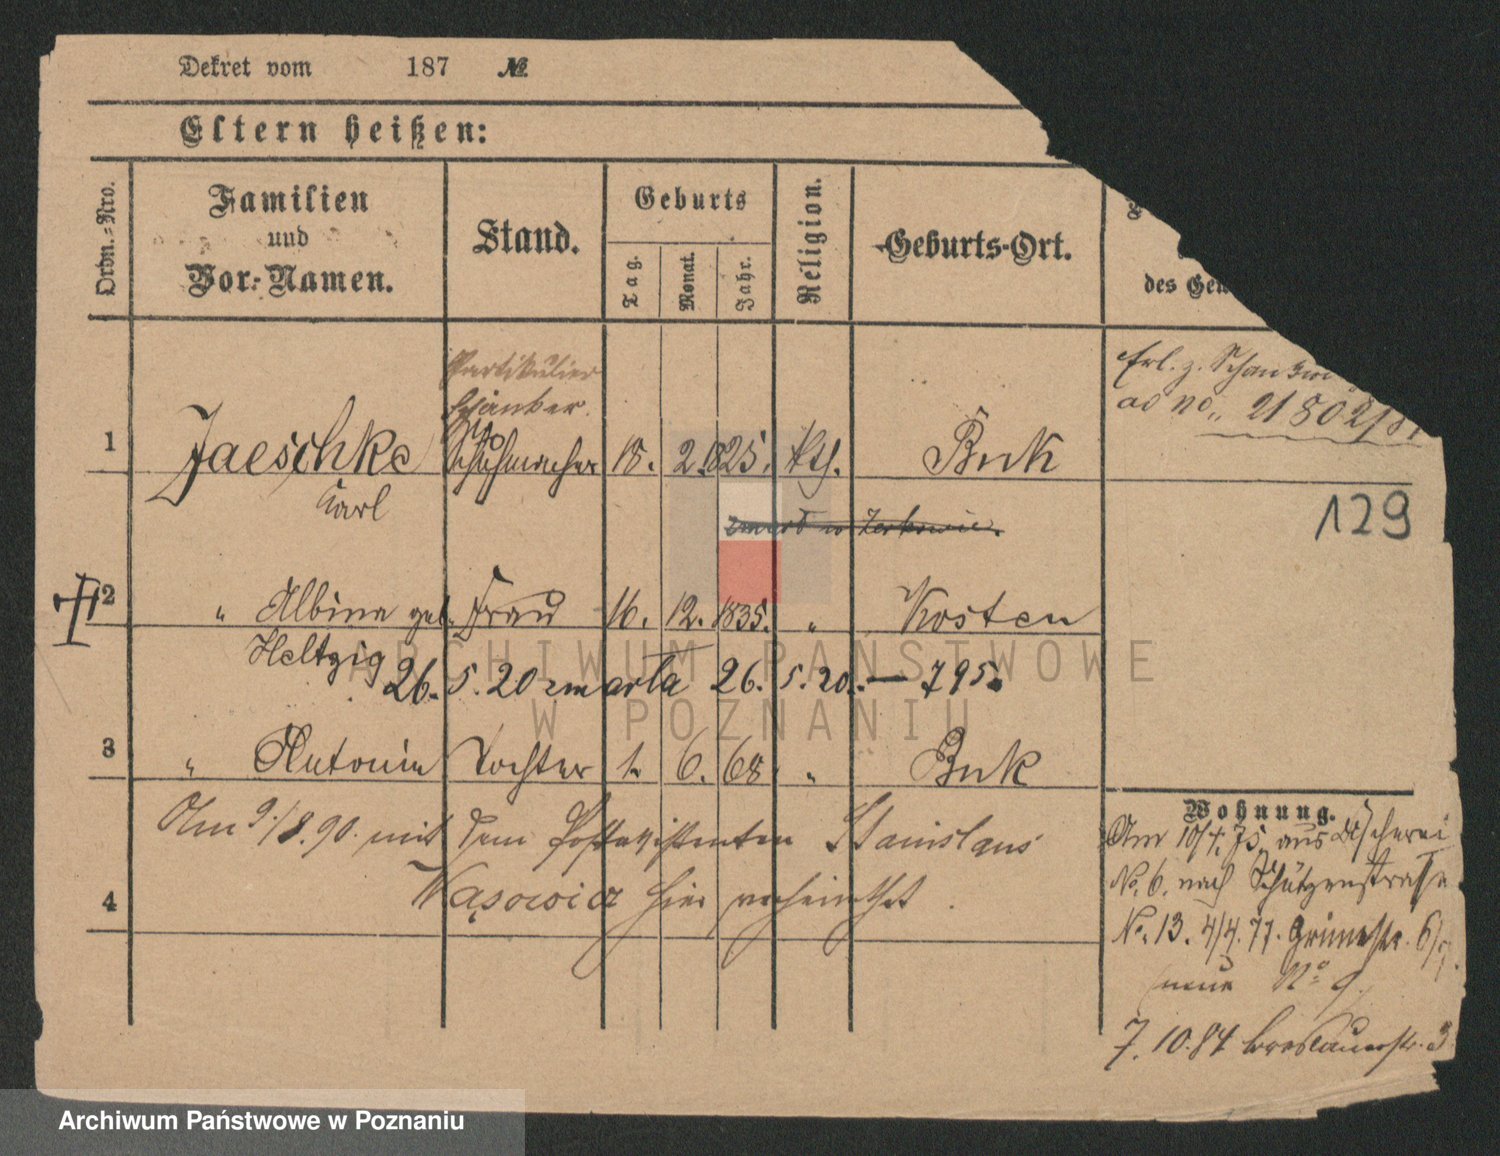 Dekret vom 187 №
Eltern heißen:
Ordn.-Nro.
Familien
und
Vor-Namen.
Stand.
Geburts
Tag.
Monat.
Jahr.
Religion.
Geburts-Ort.
des Gew
Partikulier
Schänker
1 Jaeschke Schuhmacher 18. 2. 1825. kth. Buk
Karl
Erl. z. Schankw
ad no. 21802/81
129
zmarł w Zerkowie
2 " Albina geb. Frau 16. 12. 1835. " Kosten
Heltzig
26. 5. 20 zmarła 26. 5. 20. — 795.
3 " Antonie Tochter 1. 6. 68. " Buk
Am 9./8. 90. mit dem Postassistenten Stanislaus
4 Wąsowicz hier verheirathet.
Wohnung.
Am 10/4. 75. aus
No. 6. nach Schützenstrasse
No. 13. 4/4. 77. Grünestr. 6
neue No 9.
7. 10. 84 Breslauerstr. 3
ARCHIWUM PAŃSTWOWE
W POZNANIU
Archiwum Państwowe w Poznaniu